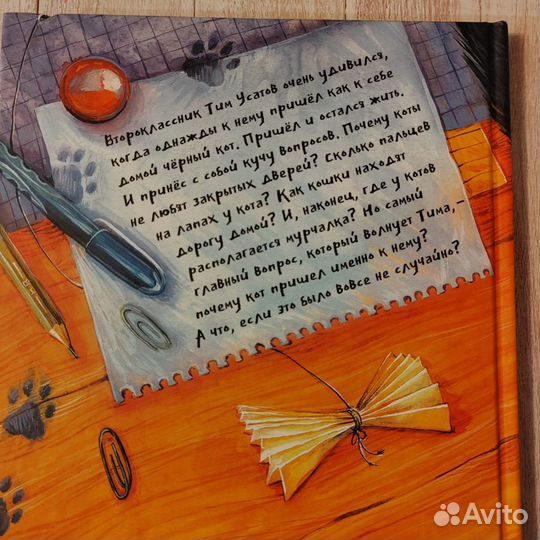 Второклассник Тим Усатов очень удивился,
когда однажды к нему пришёл как к себе
домой чёрный кот. Пришёл и остался жить.
И принёс с собой кучу вопросов. Почему коты
не любят закрытых дверей? Сколько пальцев
на лапах у кота? Как кошки находят
дорогу домой? И, наконец, где у котов
располагается мурчалка? Но самый
главный вопрос, который волнует Тима, –
почему кот пришел именно к нему?
А что, если это было вовсе не случайно?
Avito